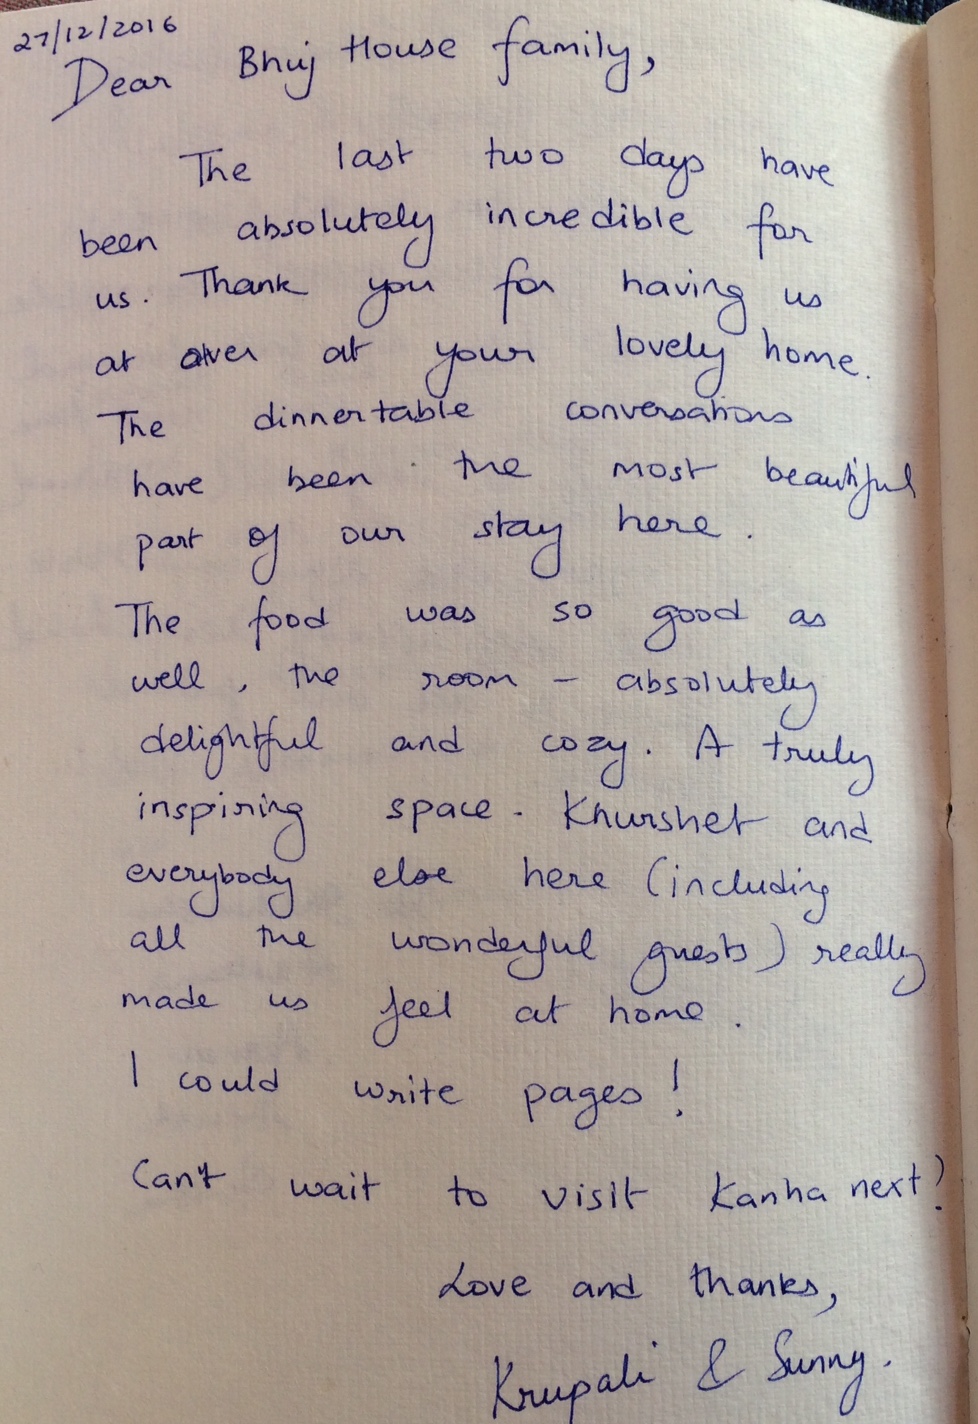 27/12/2016
Dear Bhuj House family,
The last two days have
been absolutely incredible for
us. Thank you for having us
at over at your lovely home.
The dinnertable conversations
have been the most beautiful
part of our stay here.
The food was so good as
well, the room - absolutely
delightful and cozy. A truly
inspiring space. Khurshet and
everybody else here (including
all the wonderful guests) really
made us feel at home.
I could write pages!
Can't wait to visit Kanha next!
Love and thanks,
Krupali & Sunny.